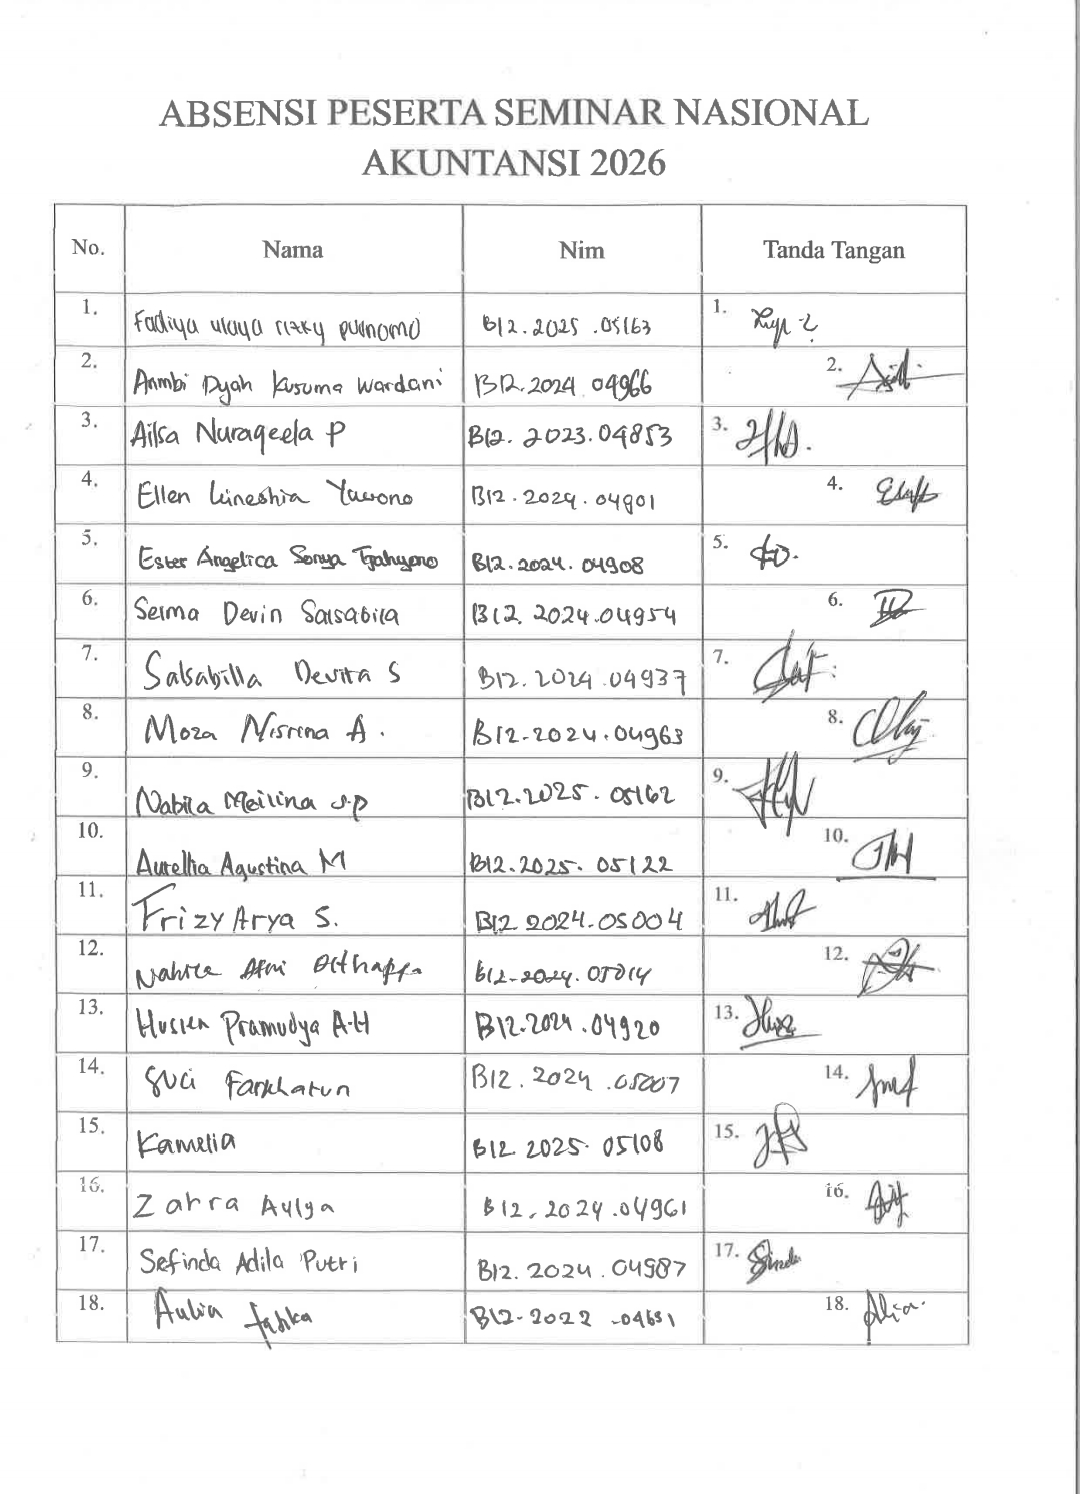 ABSENSI PESERTA SEMINAR NASIONAL
AKUNTANSI 2026
No. Nama Nim Tanda Tangan
1. Fadiya ulaya rizky purnomo B12.2025.05163 1.
2. Arimbi Dyah Kusuma Wardani B12.2024.04966 2.
3. Ailsa Nuraqeela P B12.2023.04853 3.
4. Ellen Lineshia Yuwono B12.2024.04901 4.
5. Ester Angelica Sonya Tjahyono B12.2024.04908 5.
6. Selma Devin Salsabila B12.2024.04954 6.
7. Salsabilla Devita S B12.2024.04937 7.
8. Moza Nisrina A. B12-2024.04963 8.
9. Nabila Meilina S.P B12.2025.05162 9.
10. Aurellia Agustina M B12.2025.05122 10.
11. Frizy Arya S. B12.2024.05004 11.
12. B12-2024.05014 12.
13. Husien Pramudya A.H B12.2024.04920 13.
14. Suci Farkhatun B12.2024.05007 14.
15. Kamelia B12.2025.05108 15.
16. Zahra Aulya B12.2024.04961 16.
17. Sefinda Adila Putri B12.2024.04987 17.
18. Aulia B12-2022 18.